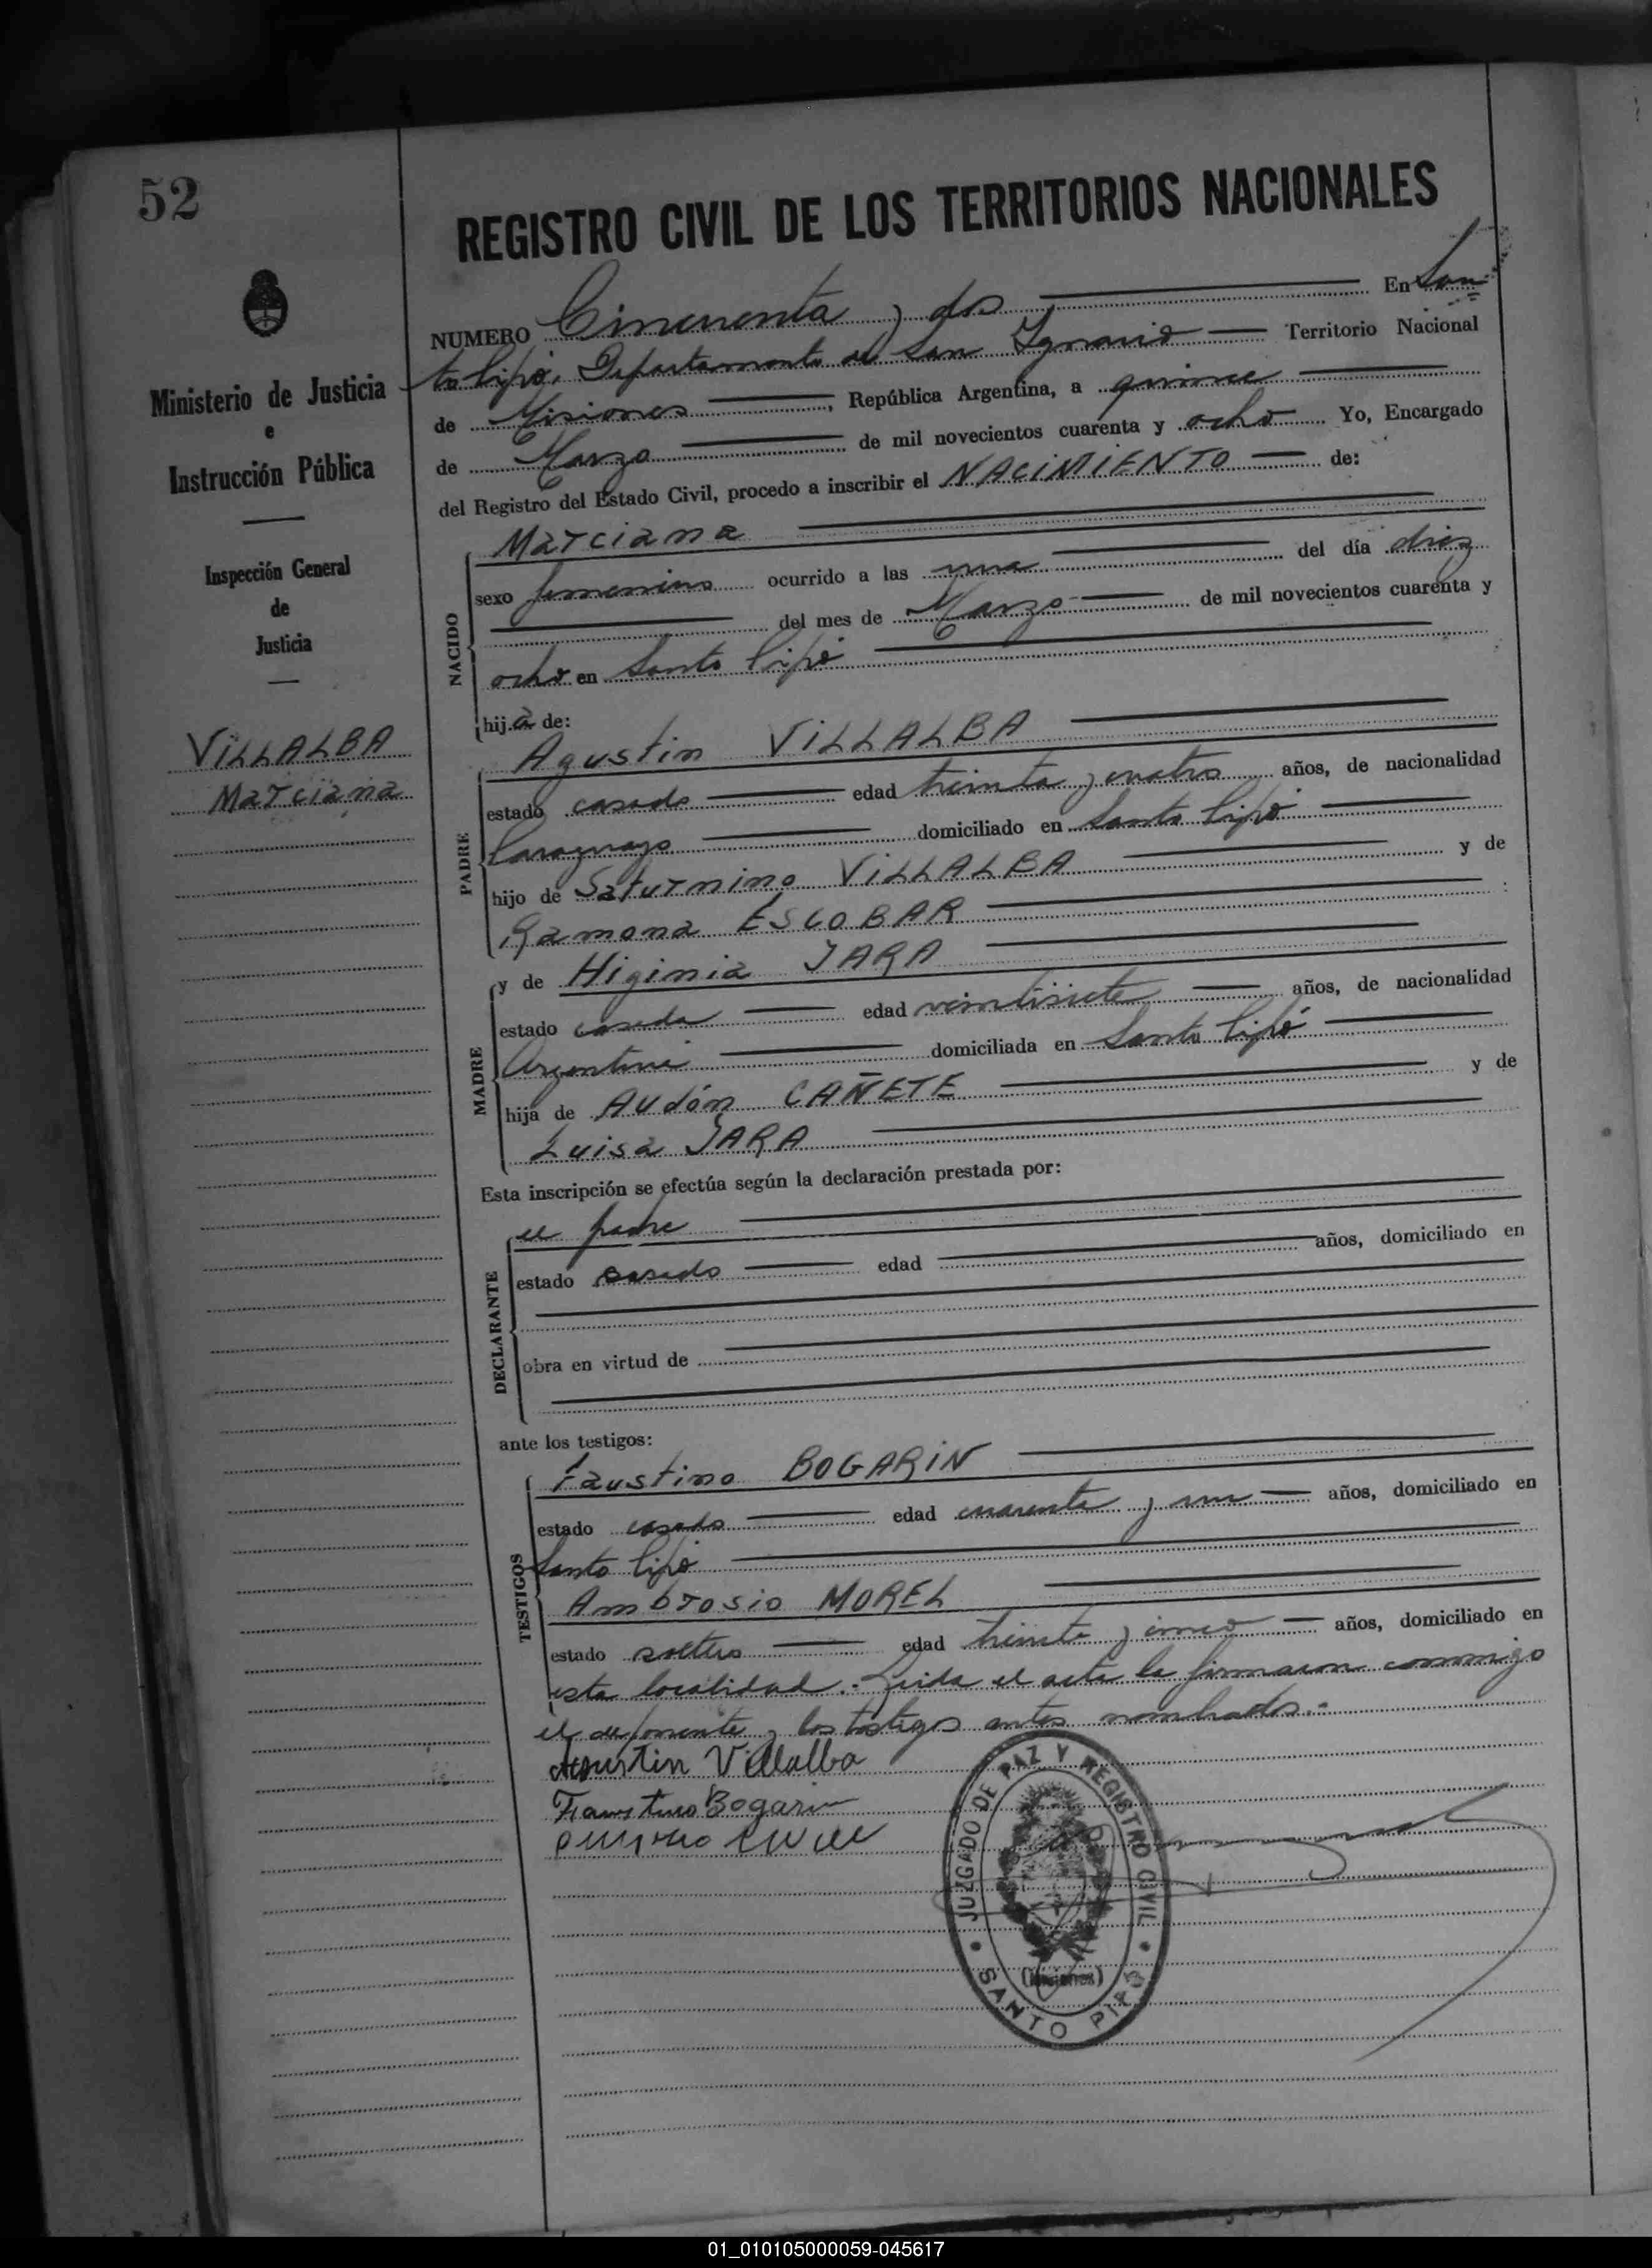 52
REGISTRO CIVIL DE LOS TERRITORIOS NACIONALES
Ministerio de Justicia
e
Instrucción Pública
Inspección General
de
Justicia
VILLALBA
Marciana
NUMERO Cincuenta y dos En San
to Pipó, Departamento de San Ignacio Territorio Nacional
de Misiones, República Argentina, a quince
de Marzo de mil novecientos cuarenta y ocho Yo, Encargado
del Registro del Estado Civil, procedo a inscribir el NACIMIENTO de:
NACIDO
Marciana
sexo femenino ocurrido a las una del día diez
del mes de Marzo de mil novecientos cuarenta y
ocho en Santo Pipó
hija de:
PADRE
Agustin VILLALBA
estado casado edad treinta y cuatro años, de nacionalidad
Paraguayo domiciliado en Santo Pipó
hijo de Saturnino VILLALBA y de
Ramona ESCOBAR
MADRE
y de Higinia JARA
estado casada edad veintisiete años, de nacionalidad
Argentina domiciliada en Santo Pipó
hija de Audón CAÑETE y de
Luisa JARA
Esta inscripción se efectúa según la declaración prestada por:
DECLARANTE
el padre
estado casado edad años, domiciliado en
obra en virtud de
ante los testigos:
TESTIGOS
Faustino BOGARIN
estado casado edad cuarenta y un años, domiciliado en
Santo Pipó
Ambrosio MOREL
estado soltero edad treinta y cinco años, domiciliado en
esta localidad.- Leida el acta la firmaron conmigo
el deponente y los testigos antes nombrados.-
Agustin Villalba
Faustino Bogarin
JUZGADO DE PAZ Y REGISTRO CIVIL
(Misiones)
SANTO PIPÓ
01_010105000059-045617